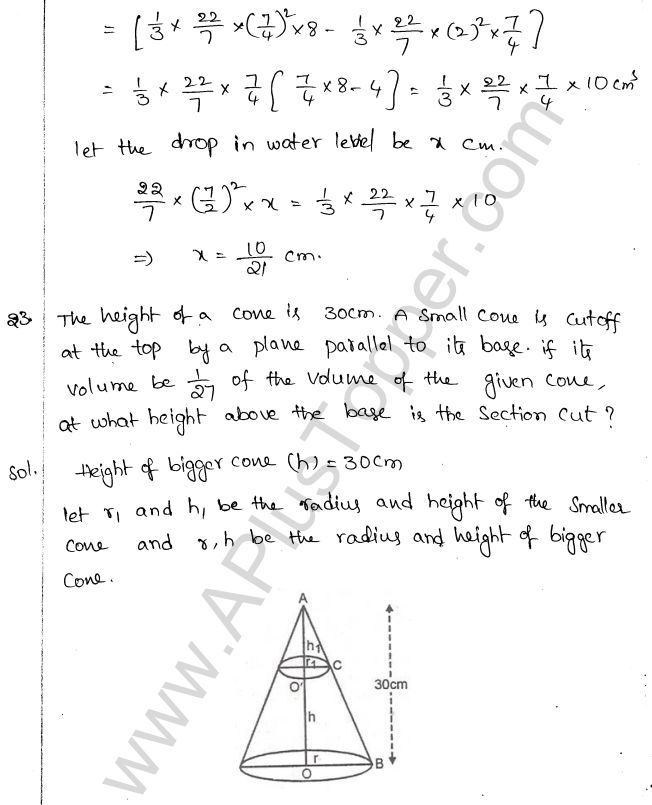 = [ 1/3 × 22/7 × (7/4)² × 8 - 1/3 × 22/7 × (2)² × 7/4 ]
= 1/3 × 22/7 × 7/4 [ 7/4 × 8 - 4 ] = 1/3 × 22/7 × 7/4 × 10 cm³
let the drop in water level be x cm.
22/7 × (7/2)² × x = 1/3 × 22/7 × 7/4 × 10
⇒ x = 10/21 cm.
23 The height of a cone is 30cm. A small cone is cutoff
at the top by a plane parallel to its base. if its
volume be 1/27 of the volume of the given cone,
at what height above the base is the section cut?
Sol. Height of bigger cone (h) = 30cm
let r₁ and h₁ be the radius and height of the smaller
cone and r, h be the radius and height of bigger
cone.
A
h₁
r₁ C
O'
30cm
h
r
B
O
www.APlusTopper.com